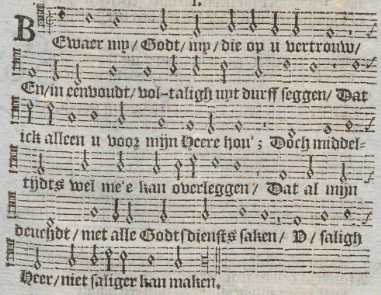 1.
BEwaer my/ Godt/ my/ die op u vertrouw/
En/ in eenvoudt/ vol-taligh uyt durff seggen/ Dat
ick alleen u voor mijn Heere hou'; Doch middel-
tijdts wel me'e kan overleggen/ Dat al mijn
deuchdt/ met alle Godtsdiensts saken/ V/ saligh
Heer/ niet saliger kan maken.